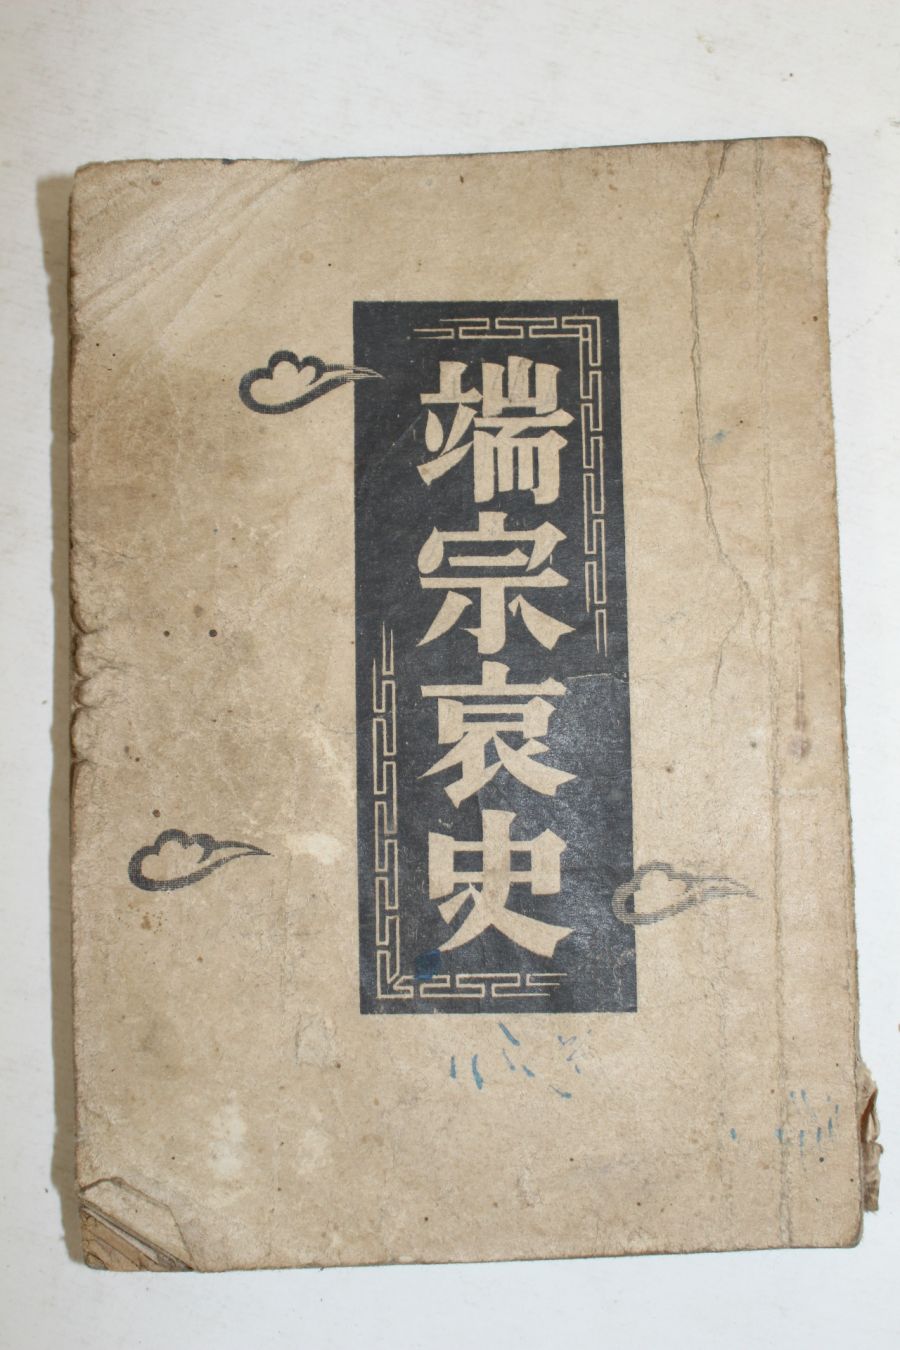 端宗哀史